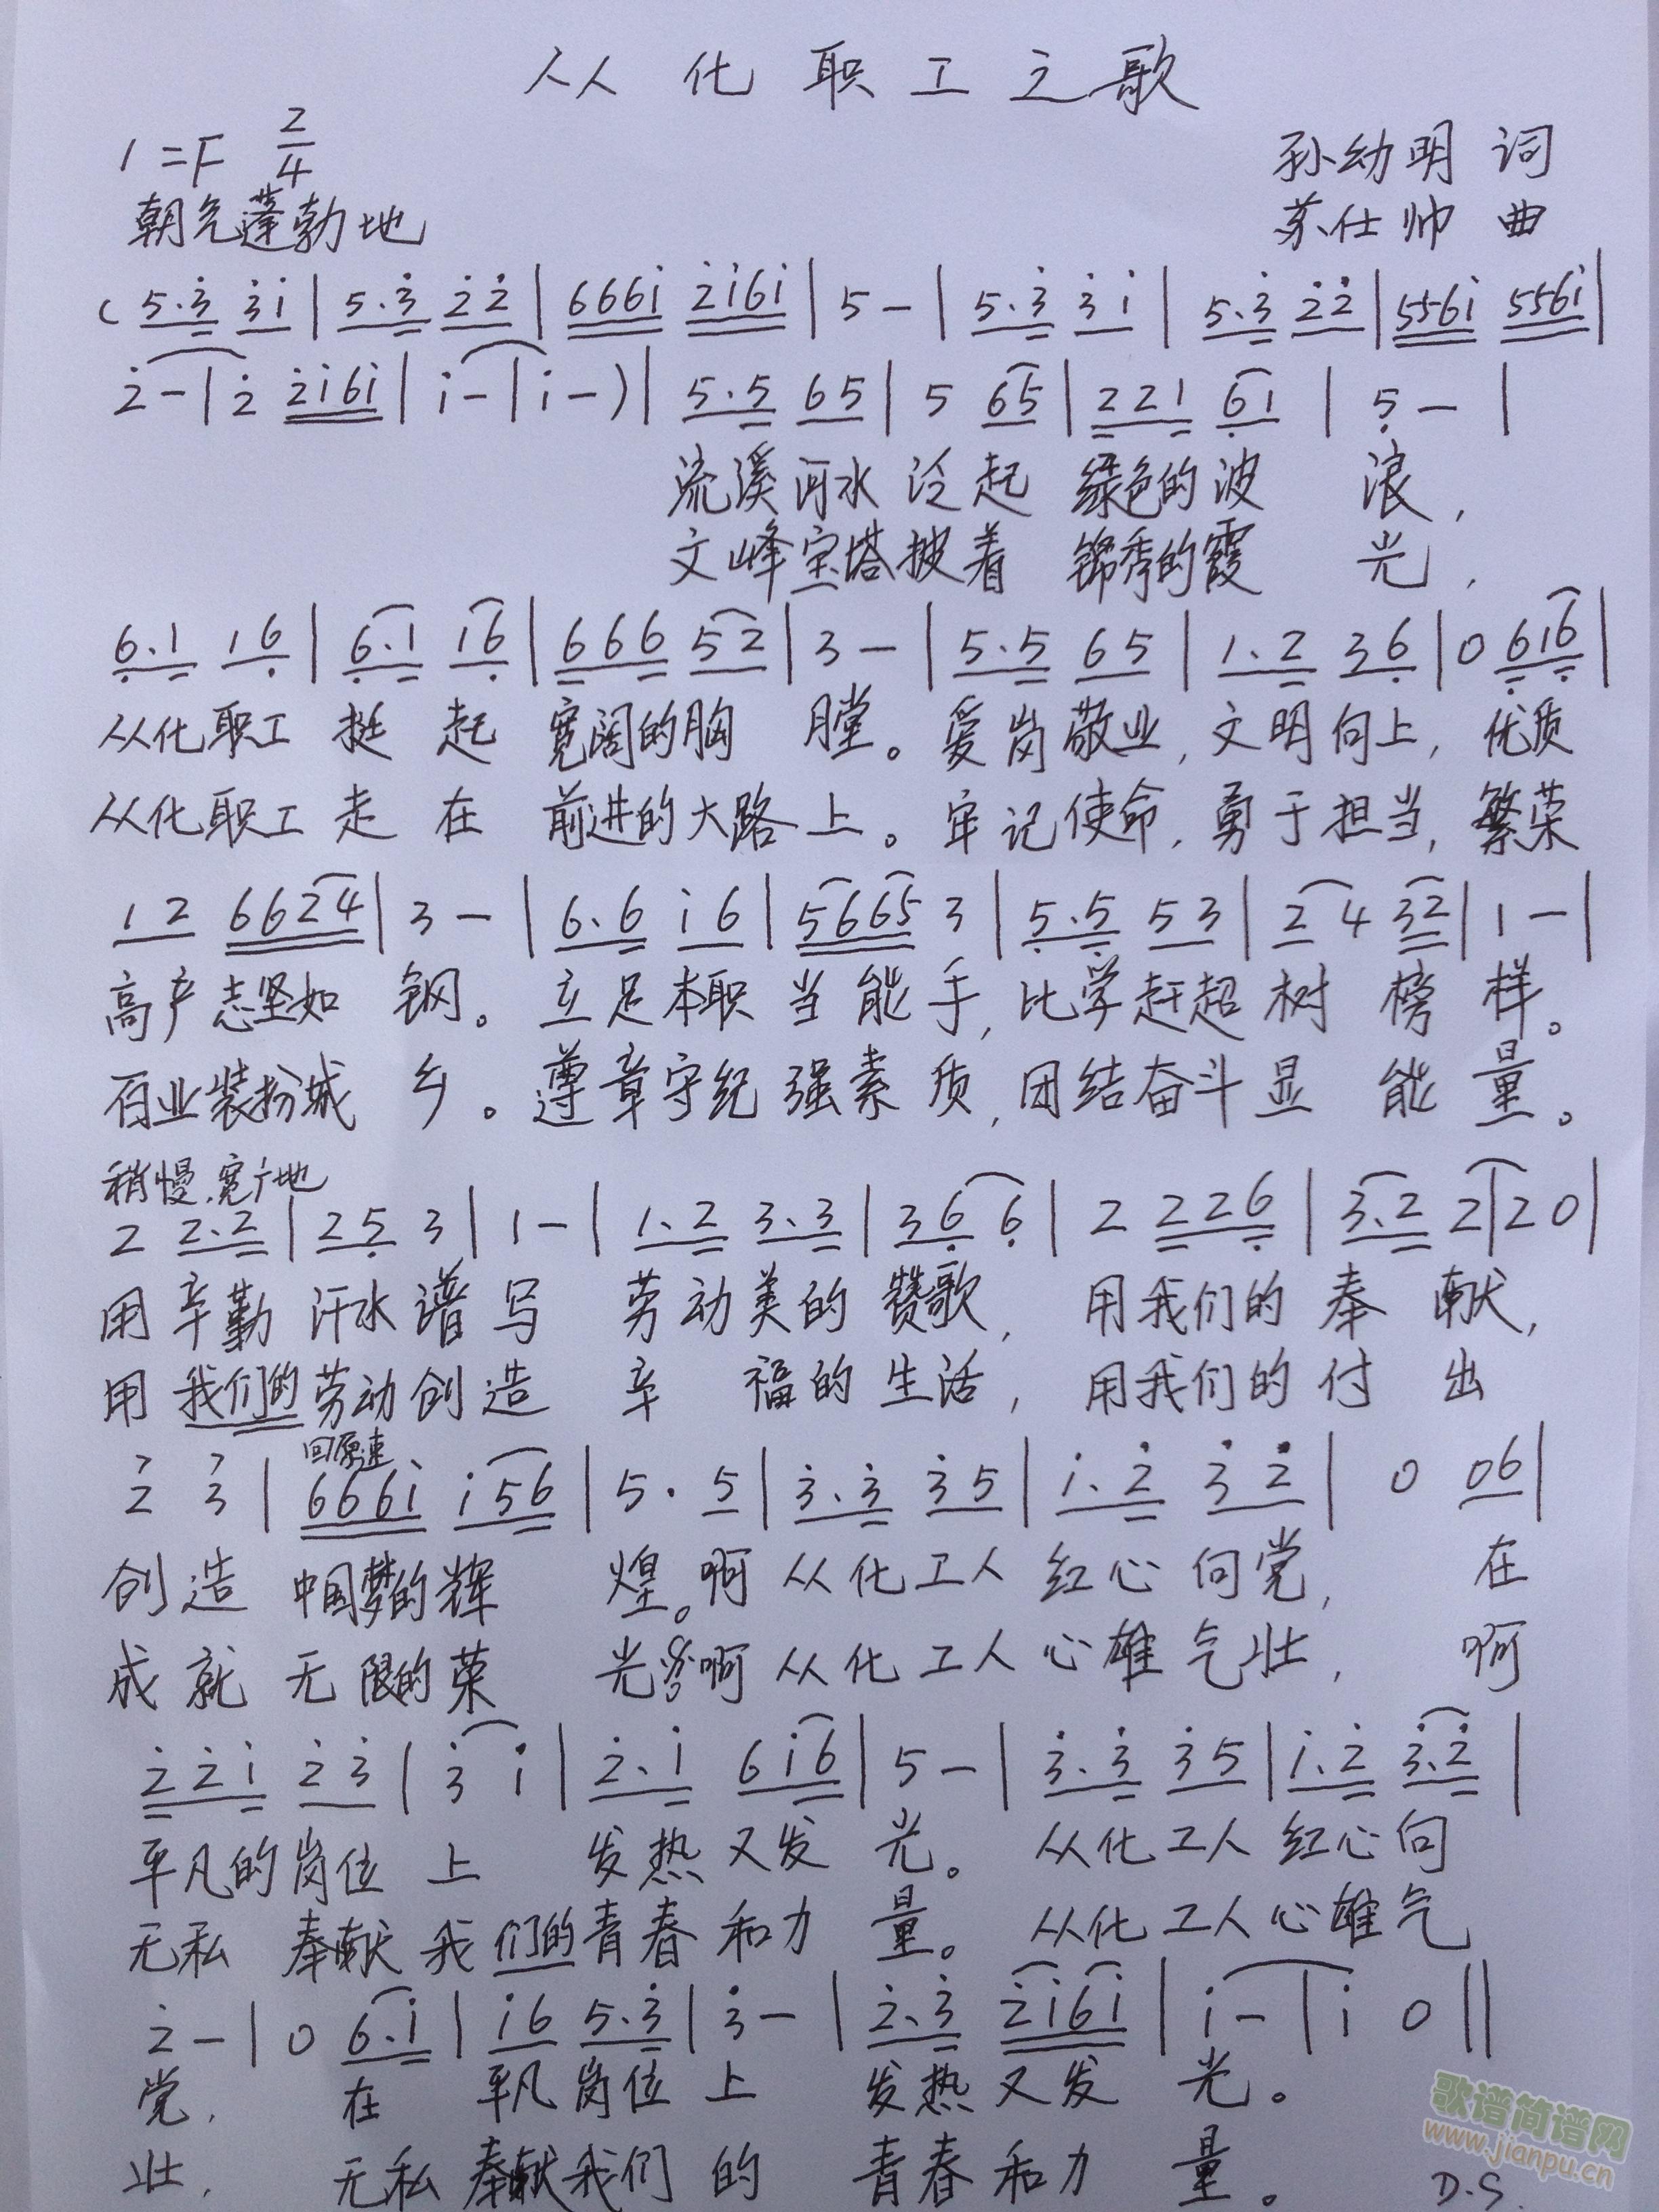 从化职工之歌
1=F 2/4
孙幼明 词
朝气蓬勃地
苏仕帅 曲
( 5.3 3i | 5.3 22 | 666i 2i6i | 5 - | 5.3 3i | 5.3 22 | 556i 556i |
2 - | 2 2i6i | i - | i - ) | 5.5 65 | 5 65 | 221 61 | 5 - |
流溪河水泛起 绿色的波 浪,
文峰宝塔披着 锦秀的霞 光,
6.1 16 | 6.1 16 | 666 52 | 3 - | 5.5 65 | 1.2 36 | 0 616 |
从化职工 挺 起 宽阔的胸 膛。爱岗敬业,文明向上,优质
从化职工 走 在 前进的大路上。牢记使命,勇于担当,繁荣
12 6624 | 3 - | 6.6 i6 | 5665 3 | 5.5 53 | 2 4 32 | 1 - |
高产志坚如 钢。立足本职 当能手,比学赶超 树 榜 样。
百业装扮城 乡。遵章守纪 强素质,团结奋斗 显 能 量。
稍慢.宽广地
2 2.2 | 25 3 | 1 - | 1.2 3.3 | 36 6 | 2 226 | 3.2 2 | 2 0 |
用辛勤 汗水谱写 劳动美的 赞歌, 用我们的 奉 献,
用 我们的 劳动创造 幸 福的生活, 用我们的 付 出
回原速
2 3 | 666i i56 | 5 . 5 | 3.3 35 | i.2 32 | 0 06 |
创造 中国梦的辉 煌。啊 从化工人 红心向党, 在
成就 无限的荣 光 啊 从化工人 心雄气壮, 啊
22i 23 | 3 i | 2.i 6i6 | 5 - | 3.3 35 | i.2 3.2 |
平凡的岗位 上 发热又发 光。 从化工人 红心向
无私 奉献我们的青春和力 量。 从化工人心雄气
2 - | 0 6.i | i6 5.3 | 3 - | 2.3 2i6i | i - | i 0 ||
党, 在 平凡岗位 上 发热又发 光。
壮, 无私奉献我们 的 青春和力 量。 D.S.
歌谱简谱网
www.jianpu.cn